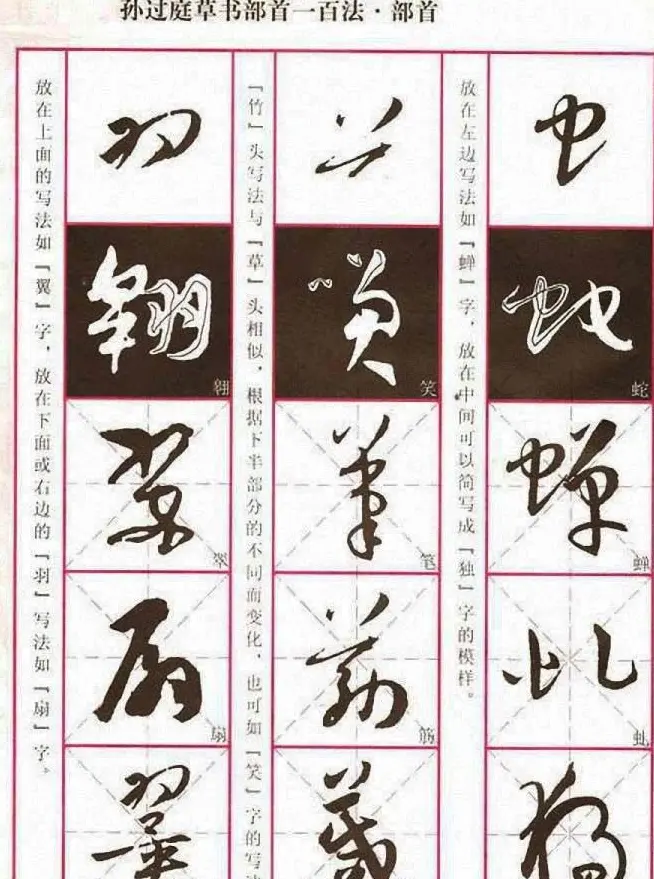 孙过庭草书部首一百法·部首
放在左边写法如「蝉」字，放在中间可以简写成「独」字的模样。
虫
蛇
蛇
蝉
蝉
虬
虬
独
「竹」头写法与「草」头相似，根据下半部分的不同而变化，也可如「笑」字的写法
笑
笑
笔
笔
筋
筋
放在上面的写法如「翼」字，放在下面或右边的「羽」写法如「扇」字。
羽
翱
翱
翠
翠
扇
扇
翼